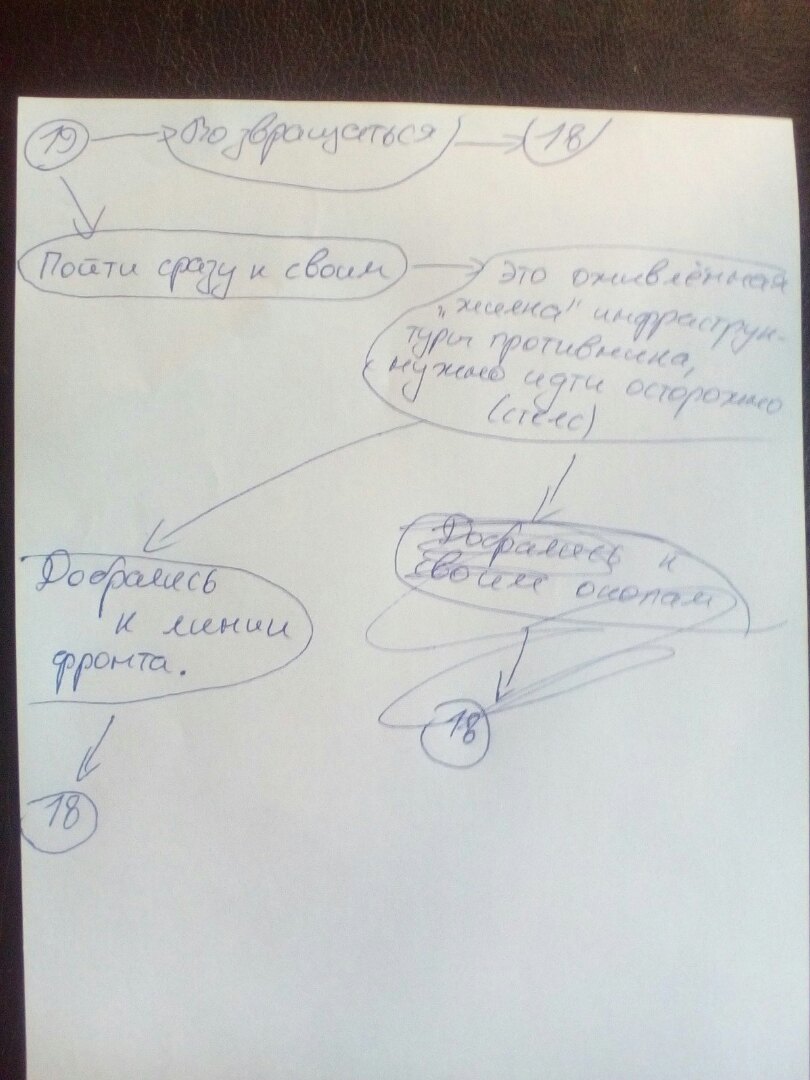 19
Возвращаться
18
Пойти сразу к своим
Это оживлённая
"жилка" инфраструк-
туры противника,
нужно идти осторожно
(стелс)
Добрались
к линии
фронта.
Добрались к
своим окопам
18
18